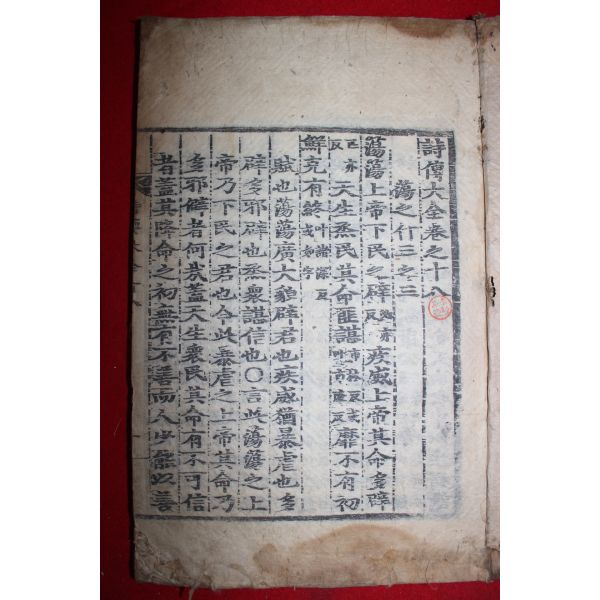 詩傳大全卷之十八
蕩之什三之三
蕩蕩上帝下民之辟必亦反疾威上帝其命多辟
匹亦反天生烝民其命匪諶市林反或叶市隆反靡不有初
鮮克有終叶諸深反或如字
賦也蕩蕩廣大貌辟君也疾威猶暴虐也多
辟多邪辟也烝衆諶信也○言此蕩蕩之上
帝乃下民之君也今此暴虐之上帝其命乃
多邪僻者何哉蓋天生衆民其命有不可信
者蓋其降命之初無有不善而人少能以善